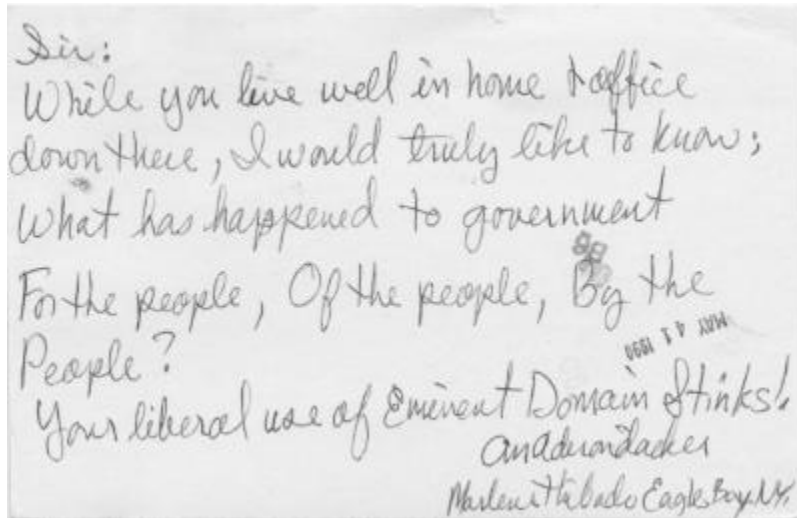 Sir:
While you live well in home & office
down there, I would truly like to know;
What has happened to government
For the people, Of the people, By the
People?
MAY 1990
Your liberal use of Eminent Domain Stinks!
an Adirondacker
Marlene Eagle Bay N.Y.